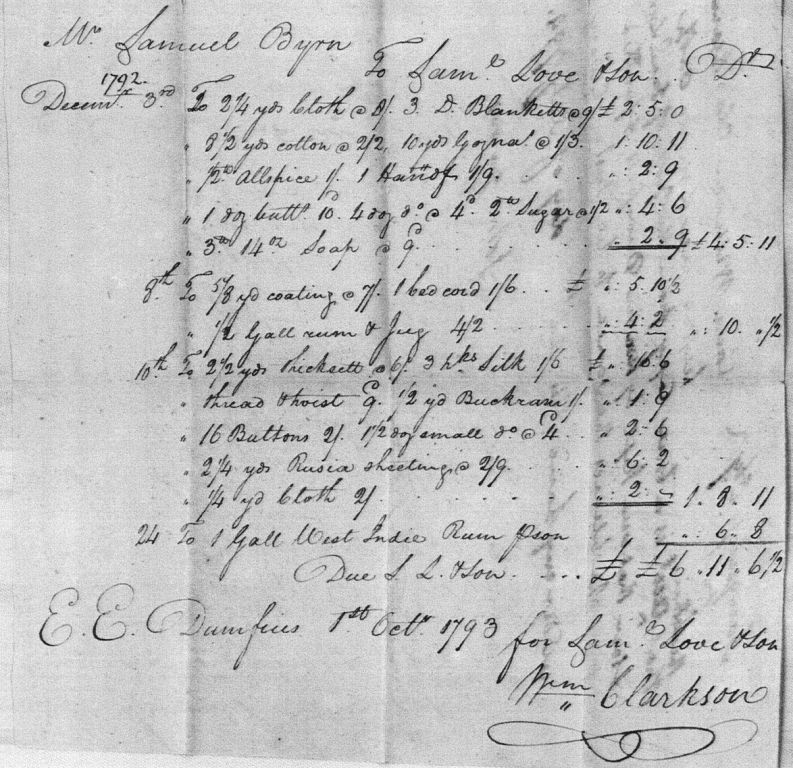 Mr Samuel Byrn
To Saml Love & Son. Dr
1792.
Decemr 3rd To 2 1/4 yds Cloth @ 8/. 3 Do Blanketts @ 9/ £ 2: 5: 0
" 8 1/2 yds cotton @ 2/2, 10 yds @ 1/3. 1: 10: 11
" 1/2 lb Allspice 1/. 1 Handf 1/9. . . . " 2: 9
" 1 doz butts 10d. 4 doz do @ 4d. 2 lb Sugar @ 1/2 " 4: 6
" 3 lb 14 oz Soap @ 9d. . . . " 2. 9 £4: 5: 11
8th To 5/8 yd coating @ 7/. 1 bed cord 1/6 . . £ ". 5. 10 1/2
" 1/2 Gall rum & Jug 4/2 . . . . . " 4: 2 ": 10. " 1/2
10th To 2 1/2 yds thicksett @ 6/. 3 hks Silk 1/6 £ ". 16: 6
" thread & twist 9d. 1/2 yd Buckram 1/. ". 1: 9
" 16 Buttons 2/. 1 1/2 doz small do @ 4d . . " 2: 6
" 2 1/4 yds Rusia sheeting @ 2/9 . . . . " 6. 2
" 1/4 yd Cloth 2/. . . . . . ". 2: - 1. 8. 11
24 To 1 Gall West Indie Rum pson ". 6. 8
Due S. L. & Son. . . . £ £ 6 " 11 " 6 1/2
E. E. Dumfries 1st Octr 1793
for Saml Love & Son
Wm Clarkson